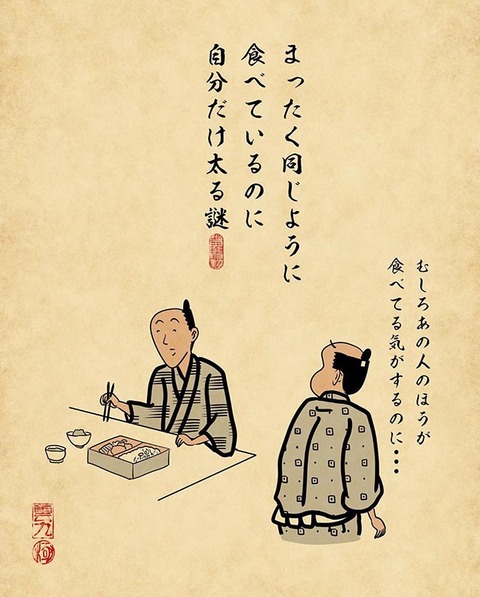 まったく同じように
食べているのに
自分だけ太る謎
むしろあの人のほうが
食べてる気がするのに・・・